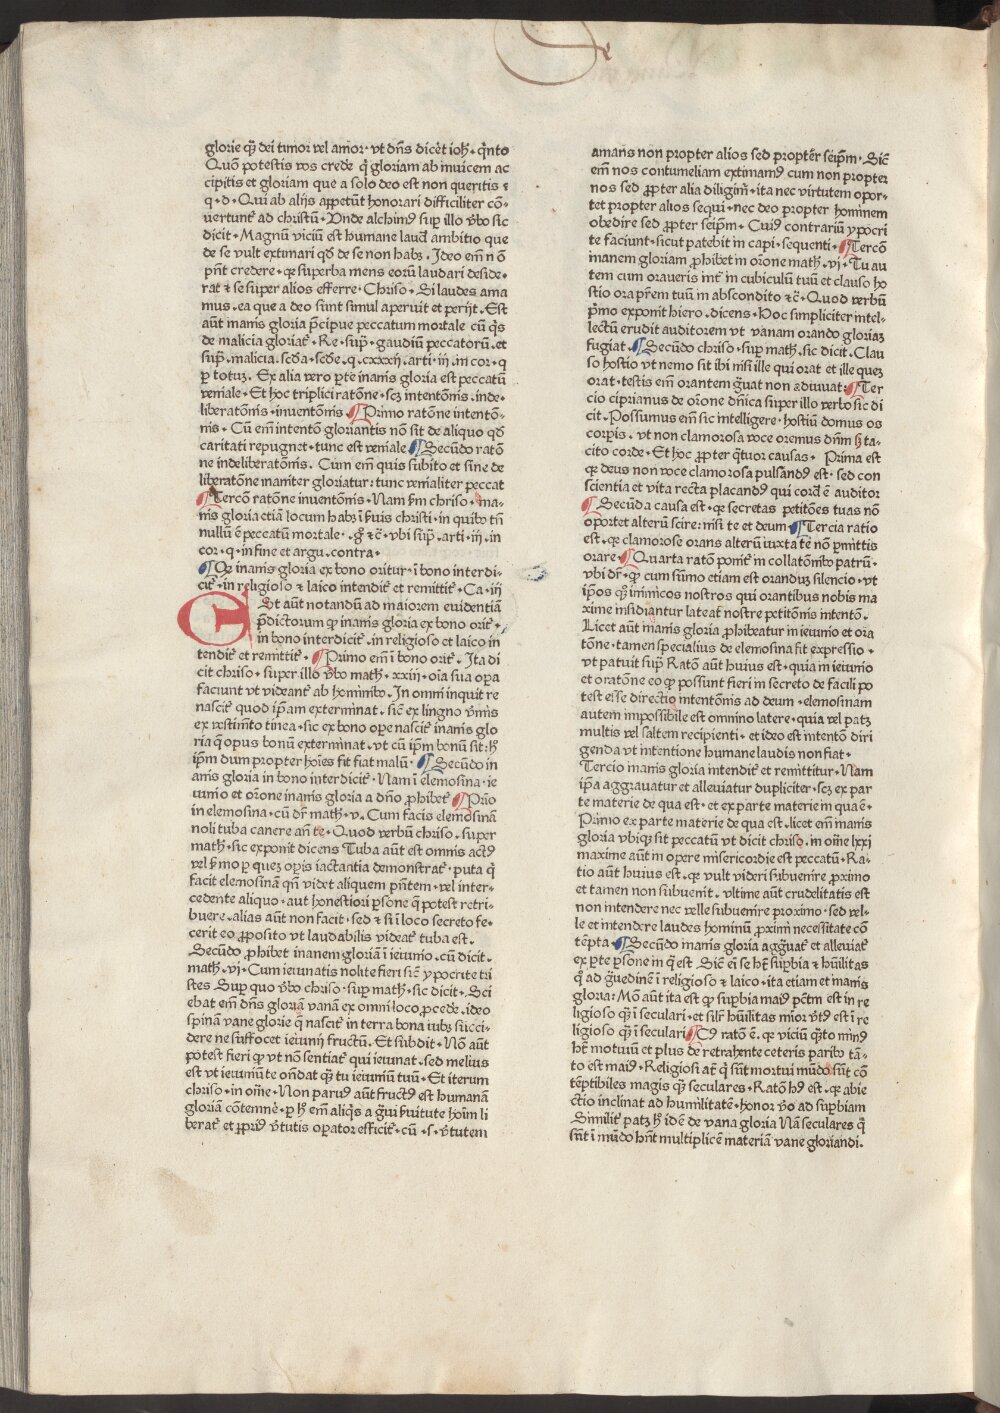 glorie qꝫ dei timor vel amor· vt dn̄s dicēt ioh̄· qͥnto
Quō potestis vos crede qͥ gloriam ab inuicem ac
cipitis et gloriam que a solo deo est non queritis ⁊
q· d· Qui ab alijs appetūt honorari difficiliter cō-
uertunt᷑ ad christū· Vnde alchimꝰ suꝑ illo v̄bo sic
dicit· Magnū viciū est humane laudꝭ ambitio que
de se vult extimari qd̄ de se non habꝫ· Ideo em̄ nō
pn̄t credere· qꝛ superba mens eorū laudari deside·
rat ⁊ se super alios efferre· Chriso· Si laudes ama
mus· ea que a deo sunt simul aperuit et perijt· Est
aūt inanis gloria p̄cipue peccatum mortale cū qͥs
de malicia gloriat᷑· Re· supͣ· gaudiū peccatorū· et
supͣ· malicia· scd̄a· scd̄e· q· cxxxij· arti· iij· in cor· q
ꝑ totuꝫ· Ex alia vero ꝑte inanis gloria est peccatū
veniale· Et hoc triplici ratōne· scꝫ intentōnis· inde·
liberatōnis· inuentōnis· ¶ Primo ratōne intentō-
nis· Cū em̄ intentō gloriantis nō sit de aliquo qd̄
caritati repugnet· tunc est veniale ¶ Secūdo ratō
ne indeliberatōnis· Cum em̄ quis subito et sine de
liberatōne inaniter gloriatur: tunc venialiter peccat
¶ Tercō ratōne inuentōnis· Nam ẜm chriso· ina-
nis gloria etiā locum habꝫ ī ẜuis christi· in quibꝰ tn̄
nullū ē peccatū mortale· gͦ ⁊c̄· vbi supͣ· arti· iij· in
cor· q· in fine et argu· contra·
¶ Qꝛ inanis gloria ex bono oritur· ī bono interdi-
cit᷑· in religioso ⁊ laico intendit᷑ et remittit᷑· Ca· iij
Est aūt notandū ad maiorem euidentiā
p̄dictorum ꝙ inanis gloria ex bono orit᷑·
in bono interdicit᷑· in religioso et laico in
tendit᷑ et remittit᷑· ¶ Primo em̄ ī bono orit᷑· Ita di
cit chriso· super illo v̄bo math̄· xxiij· oīa sua oꝑa
faciunt vt videant᷑ ab hominibꝰ· In omni inquit re
nascit᷑ quod ip̄am exterminat· sic̄ ex lingno v̄mis
ex vestimēto tinea· sic ex bono oꝑe nascit᷑ inanis glo
ria q̄ opus bonū exterminat· vt cū ip̄m bonū sit: h̄
ip̄m dum propter hoīes fit fiat malū· ¶ Secūdo in
anis gloria in bono interdicit᷑· Nam ī elemosina· ie
iunio et orōne inanis gloria a dn̄o ꝓhibet᷑ ¶ Prīo
in elemosina· cū dr̄ math̄· v· Cum facis elemosinā
noli tuba canere an̄ te· Quod verbū chriso· super
math̄· sic exponit dicens Tuba aūt est omnis actꝰ
vel ẜmo ꝑ quez oꝑis iactantia demonstrat᷑· puta qͥ
facit elemosinā qn̄ videt aliquem pn̄tem· vel inter-
cedente aliquo· aut honestiori ꝑsone q̄ potest retri-
buere· alias aūt non facit· sed ⁊ si ī loco secreto fe·
cerit eo ꝓposito vt laudabilis videat᷑ tuba est·
Secūdo ꝓhibet inanem gloriā ī ieiunio· cū dicit·
math̄· vj· Cum ieiunatis nolite fieri sic̄ ypocrite tri
stes Suꝑ quo v̄bo chriso· suꝑ math̄· sic dicit· Sci
ebat em̄ dn̄s gloriā vanā ex omni loco ꝓcede· ideo
spinā vane glorie q̄ nascit᷑ in terra bona iubꝫ succi-
dere ne suffocet ieiunij fructū· Et subdit· Nō aūt
potest fieri ꝙ vt nō sentiat᷑ qui ieiunat· sed melius
est vt ieiuniū te ondat qꝫ tu ieiuniū tuū· Et iterum
chriso· in om̄e· Non paruꝰ aūt fructꝰ est humanā
gloriā cōtemne᷑· ꝑ h̄ em̄ aliqͥs a ḡui ẜuitute hoīm li
berat᷑ et ꝓprijꝰ v̄tutis oꝑator efficit᷑· cū · s· v̄tutem
amans non propter alios sed propter seip̄m· Sic̄
em̄ nos contumeliam extimamꝰ cum non propter
nos sed ꝓpter alia diligim᷑· ita nec virtutem opor-
tet propter alios sequi· nec deo propter hominem
obedire sed ꝓpter seip̄m· Cuiꝰ contrariū ypocri
te faciunt· sicut patebit in capi· sequenti· ¶ Tercō
inanem gloriam ꝓhibet in orōne math̄· vj· Tu au
tem cum oraueris int᷑ in cubiculū tuū et clauso ho
stio ora p̄rem tuū in abscondito ⁊c̄· Quod verbū
pͥmo exponit hiero· dicens· Hoc simpliciter intel-
lectū erudit auditorem vt vanam orando gloriaꝫ
fugiat· ¶ Secūdo chriso· suꝑ math̄· sic dicit· Clau
so hostio vt nemo sit ibi nisi ille qui orat et ille quez
orat· testis em̄ orantem ḡuat non adiuuat: ¶ Ter
cio ciprianus de orōne dn̄ica super illo verbo sic di
cit· Possumus em̄ sic intelligere· hostiū domus os
corꝑis· vt non clamorosa voce oremus dn̄m h̄ ta-
cito corde· Et hoc ꝓpter qͣtuor causas· Prima est
qꝛ deus non voce clamorosa pulsandꝰ est· sed con
scientia et vita recta placandꝰ qui cordꝭ ē auditor
¶ Secūda causa est· qꝛ secretas petitōes tuas nō
oportet alterū scire: nisi te et deum· ¶ Tercia ratio
est· qꝛ clamorose orans alterū iuxta te nō ꝑmittis
orare· ¶ Quarta ratō ponit᷑ in collatōnibꝰ patrū·
vbi dr̄· ꝙ cum sūmo etiam est oranduꝫ silencio· vt
ip̄os qꝫ inimicos nostros qui orantibus nobis ma
xime insidiantur lateat᷑ nostre petitōnis intentō·
Licet aūt inanis gloria ꝓhibeatur in ieiunio et ora
tōne· tamen specialius de elemosina fit expressio·
vt patuit supͣ Ratō aūt huius est· quia in ieiunio
et oratōne eo ꝙ possunt fieri in secreto de facili po
test esse directio intentōnis ad deum· elemosinam
autem impossibile est omnino latere· quia vel patꝫ
multis vel saltem recipienti· et ideo est intentō diri
genda vt intentione humane laudis non fiat·
Tercio inanis gloria intendit᷑ et remittitur· Nam
ip̄a aggrauatur et alleuiatur dupliciter· scꝫ ex par
te materie de qua est· et ex parte materie in qua ē·
Primo ex parte materie de qua est· licet em̄ inanis
gloria vbiqꝫ sit peccatū vt dicit chriso· in om̄e lxxi
maxime aūt in opere misericordie est peccatū· Ra-
tio aūt huius est· qꝛ vult videri subuenire ꝓximo
et tamen non subuenit· vltime aūt crudelitatis est
non intendere nec velle subuenire proximo· sed vel-
le et intendere laudes hominū ꝓximi necessitate cō
tēpta· ¶ Secūdo inanis gloria agg̈uat᷑ et alleuiat᷑
ex ꝑte ꝑsone in q̄ est Sic̄ em̄ se ht̄ suꝑbia ⁊ hūilitas
qͣ ad g̈uedinē ī religioso ⁊ laico· ita etiam et inanis
gloria: Mō aūt ita est ꝙ suꝑbia maiꝰ pctm̄ est in re
ligioso qꝫ ī seculari· et silr̄ hūilitas mīor v̄tꝰ est ī re
ligioso qꝫ ī seculari ¶ Cꝰ ratō ē· qꝛ viciū qͣto minꝰ
ht̄ motiuū et plus de retrahente ceteris paribꝰ tā-
to est maiꝰ· Religiosi at̄ qͥ sūt mortui mūdo sūt cō
tēptibiles magis qꝫ seculares· Ratō hꝰ est· qꝛ abie
ctio inclinat ad humilitatē· honor v̄o ad suꝑbiam
Similit᷑ patꝫ h̄ idē de vana gloria Nā seculares qͥ
sūt ī mūdo hn̄t multiplicē materiā vane gloriandi·